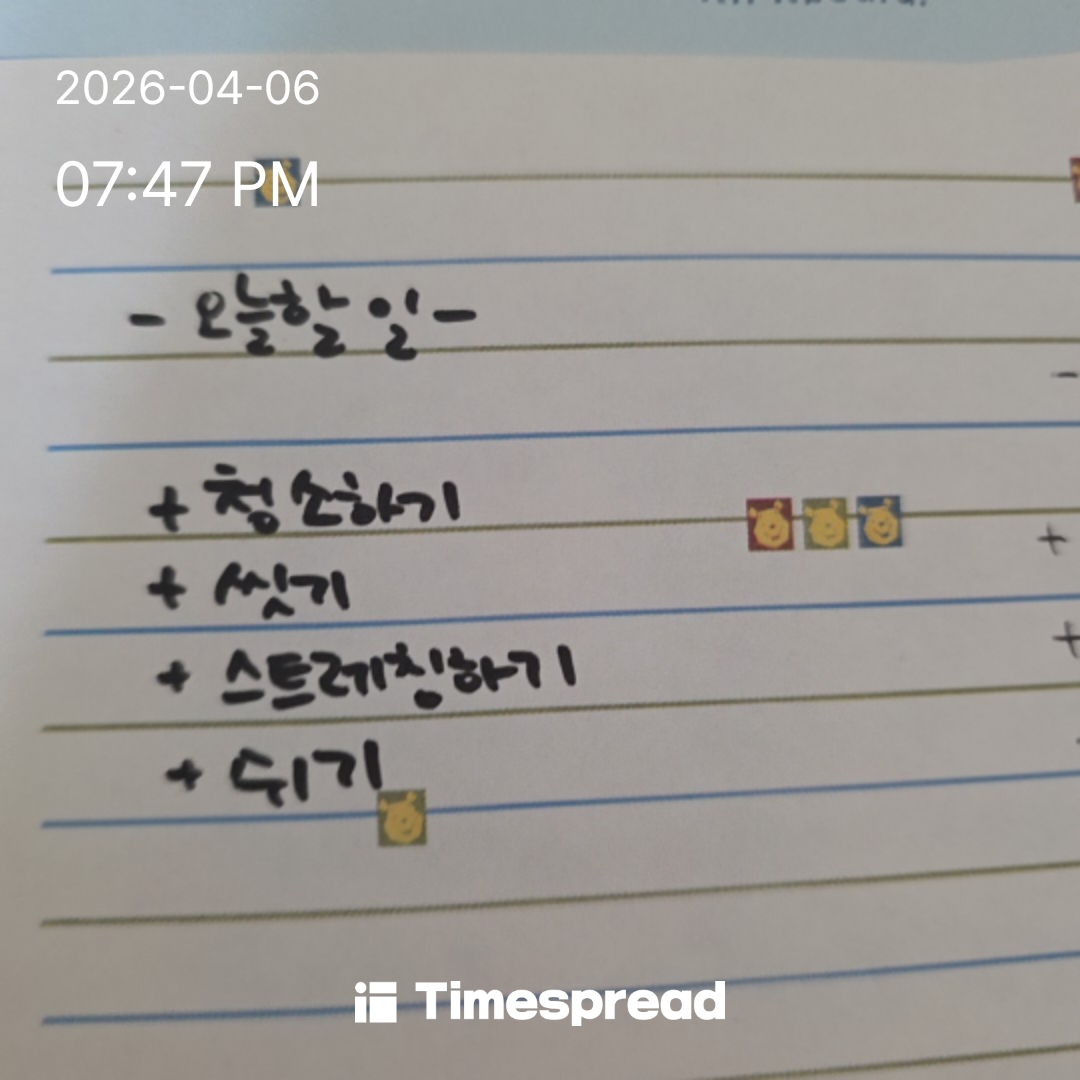 2026-04-06
07:47 PM
- 오늘할 일 -
+ 청소하기
+ 씻기
+ 스트레칭하기
+ 쉬기
Timespread